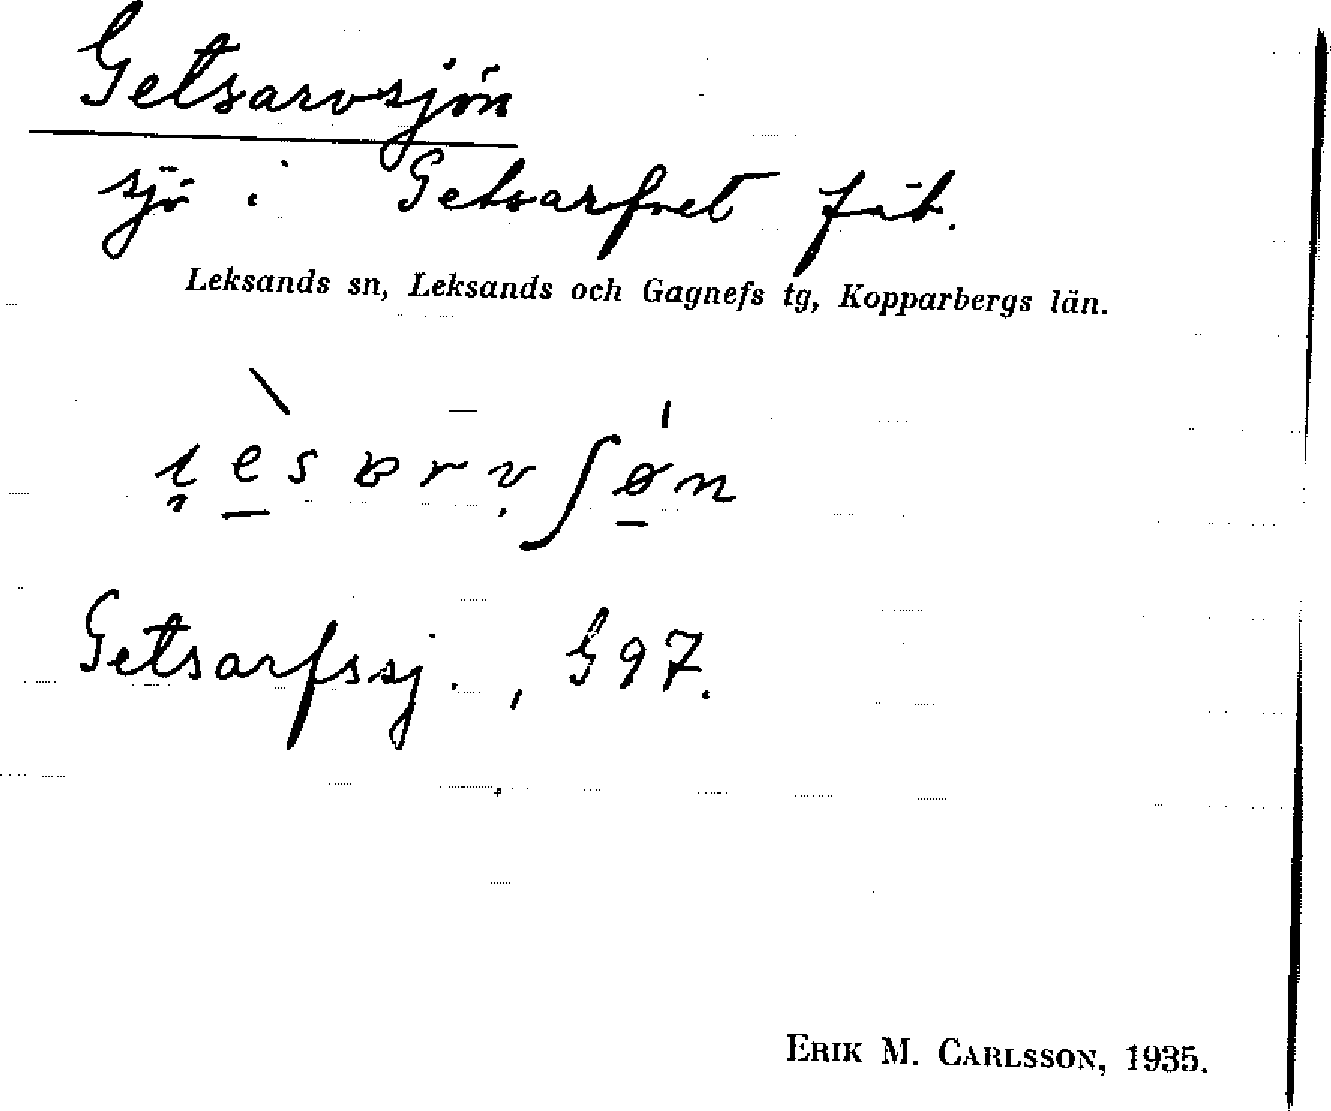 Getsarvsjön
sjö i Getsarfvet fäb.
Leksands sn, Leksands och Gagnefs tg, Kopparbergs län.
Getsarfssj., G 97.
ERIK M. CARLSSON, 1935.